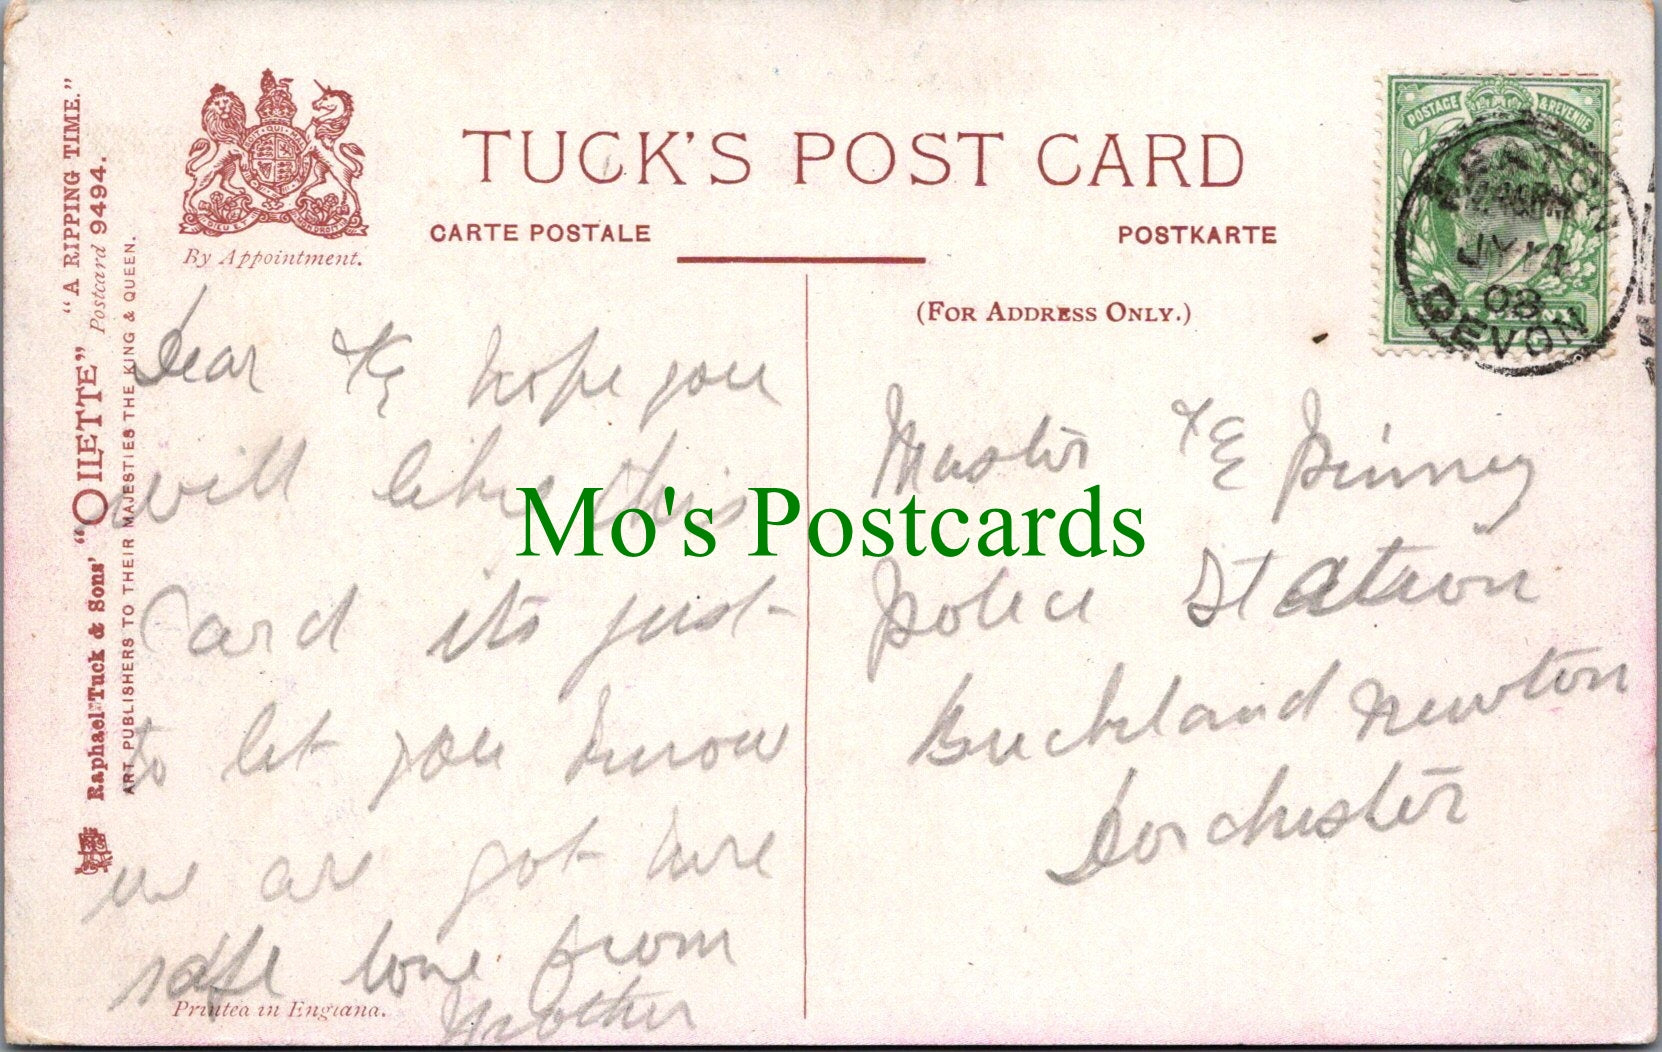 "A RIPPING TIME."
Postcard 9494.
Raphael Tuck & Sons' "OILETTE"
ART PUBLISHERS TO THEIR MAJESTIES THE KING & QUEEN.
By Appointment.
TUCK'S POST CARD
CARTE POSTALE
POSTKARTE
(FOR ADDRESS ONLY.)
POSTAGE & REVENUE
JY
08
DEVON
Dear hope you
will like this
Card its just
to let you know
we are got here
safe love from
Mother
Printed in England.
Master Pinney
Police Station
Buckland Newton
Dorchester
Mo's Postcards